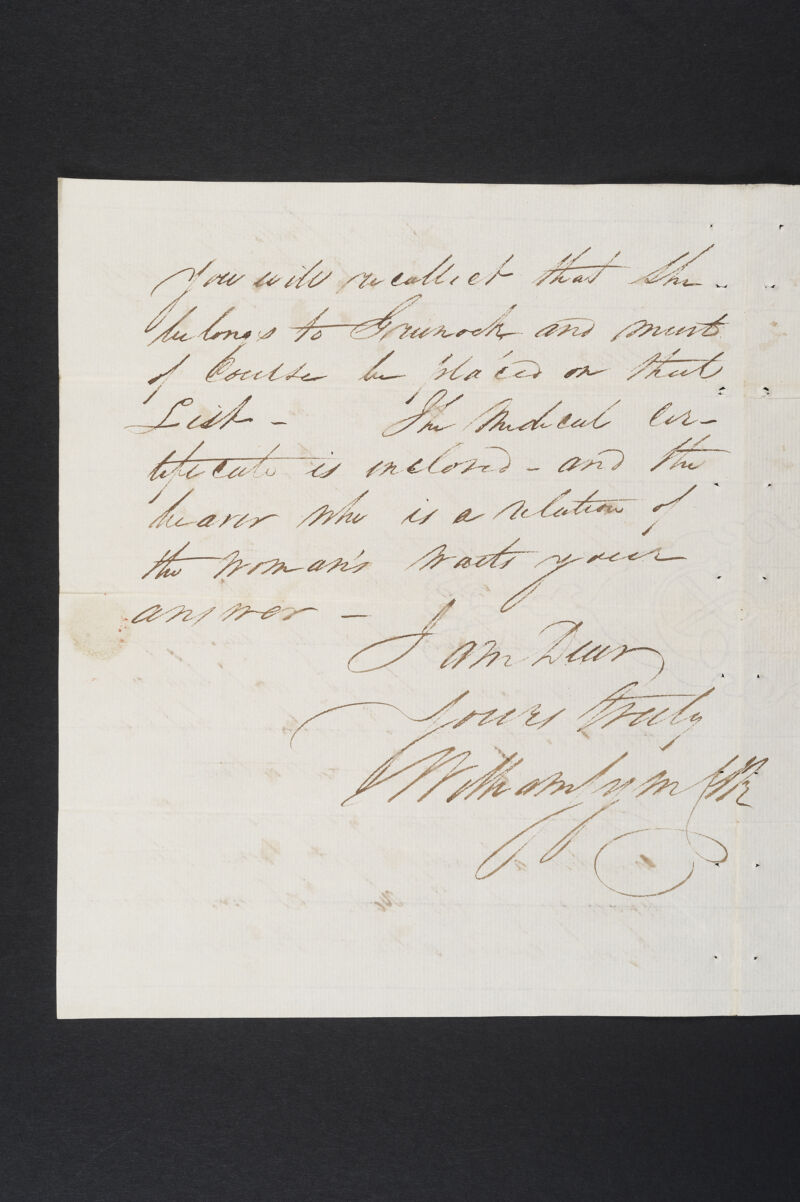 You will recollect that she
belongs to Greenock and must
of Course be placed on that
List - The Medical Cer-
tificate is inclosed - and the
bearer who is a relation of
the Woman's waits your
answer -
I am Dear
Yours truly
William Sym